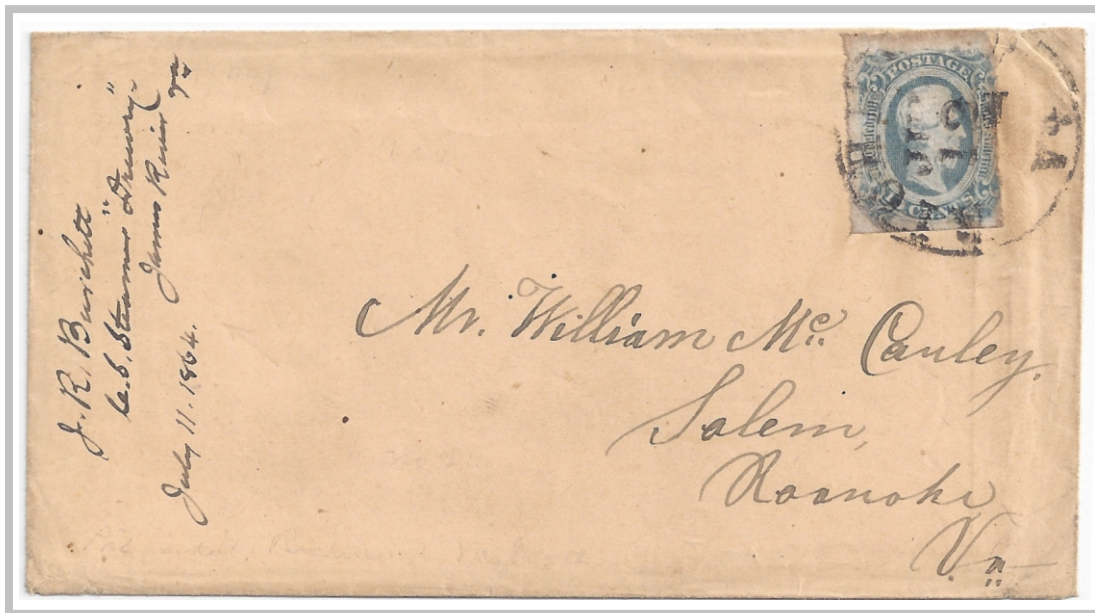 J. R. Burchett
C.S. Steamer "Drewry"
James River Va
July 11. 1864.
POSTAGE
TEN CENTS
Mr. William Mc. Cauley,
Salem,
Roanoke
Va